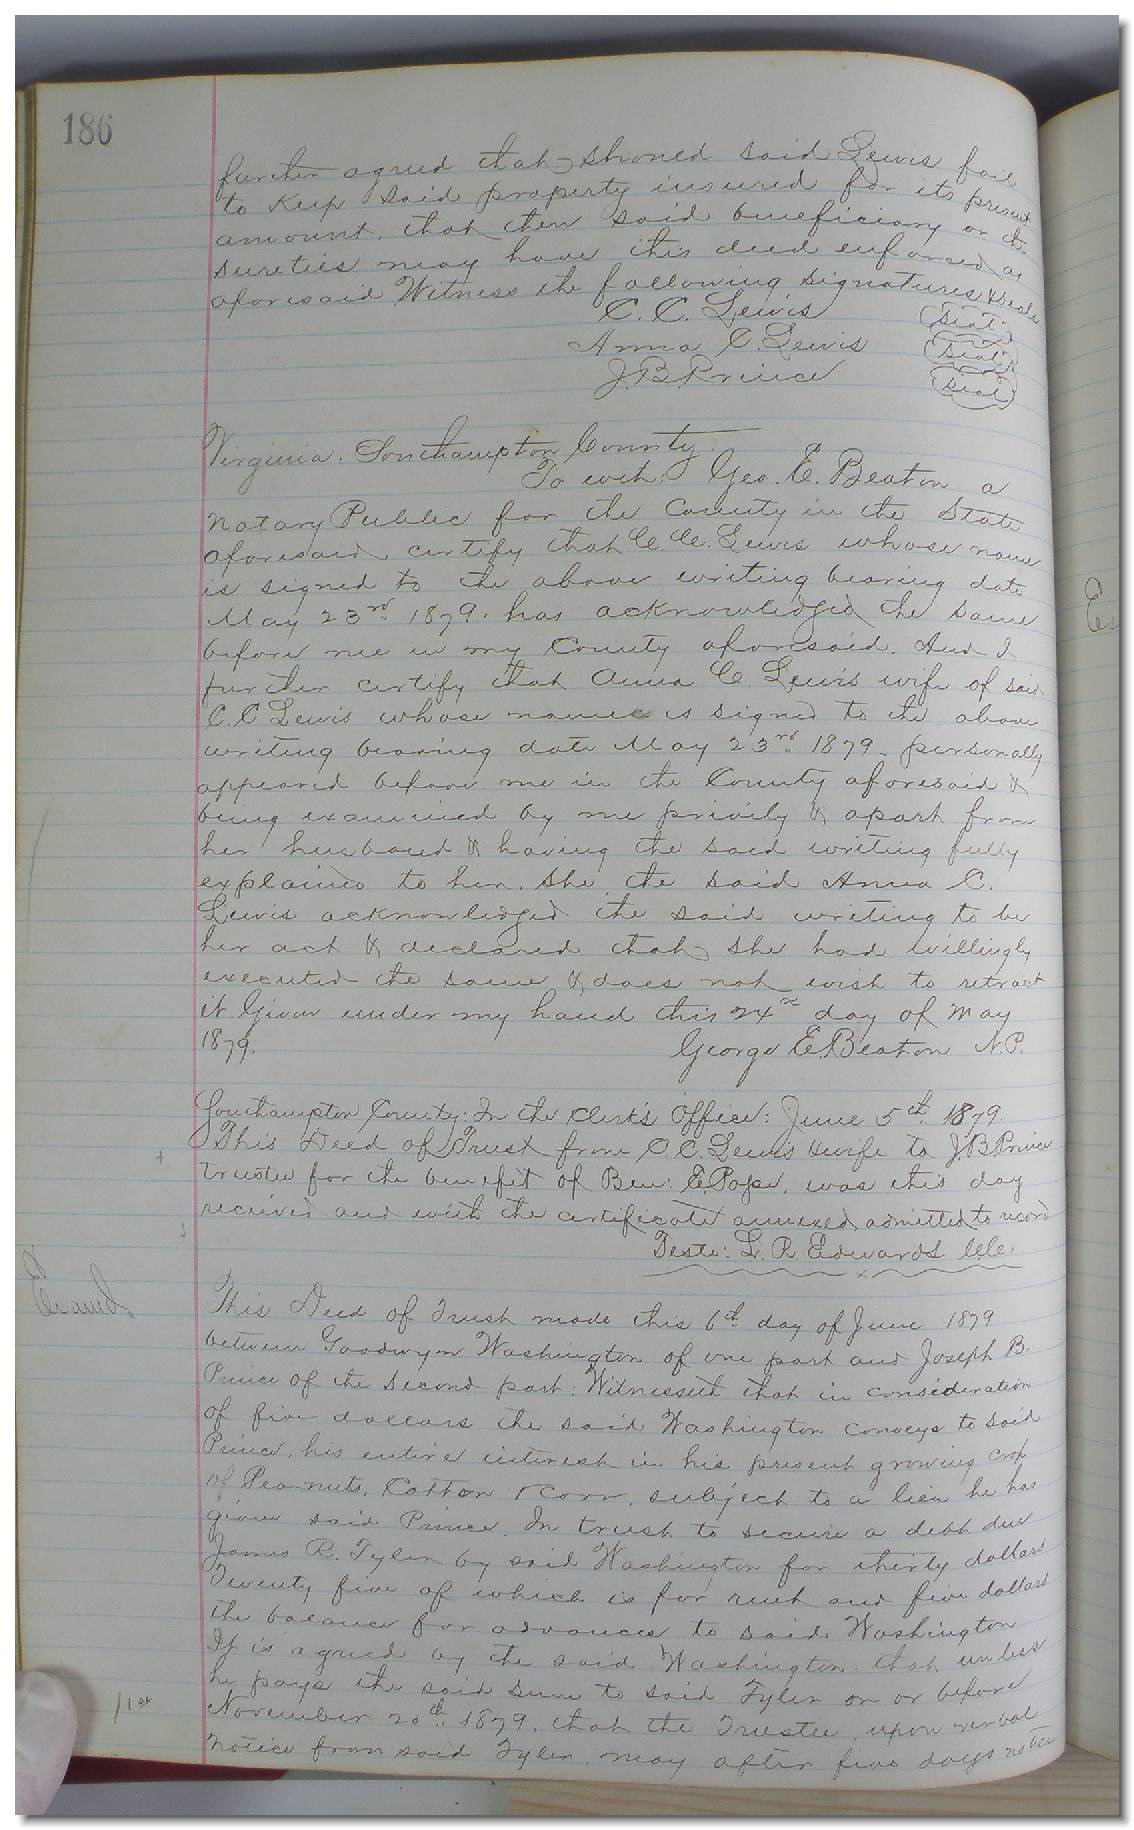 186
further agreed that should said Lewis fail
to Keep said property insured for its present
amount, that then said beneficiary or the
sureties may have this deed enforced as
aforesaid Witness the following signatures & seals
C. C. Lewis Seal
Anna C. Lewis Seal
J. B. Prince Seal
Virginia. Southampton County
To wit: Geo. E. Beaton a
Notary Public for the County in the State
aforesaid certify that C. C. Lewis whose name
is signed to the above writing bearing date
May 23rd 1879. has acknowledged the same
before me in my County aforesaid. And I
further certify that Anna C. Lewis wife of said
C. C Lewis whose name is signed to the above
writing bearing date May 23rd 1879. personally
appeared before me in the County aforesaid &
being examined by me privily & apart from
her husband & having the said writing fully
explained to her. She, the said Anna C.
Lewis acknowledged the said writing to be
her act & declared that she had willingly
executed the same & does not wish to retract
it Given under my hand this 24th day of May
1879. George E. Beaton N.P.
Southampton County: In the Clerk's Office: June 5th 1879
This Deed of Trust from C. C. Lewis & wife to J. B Prince
trustee for the benefit of Ben: E. Pope, was this day
received and with the certificate annexed admitted to record
Teste: L. R. Edwards
This Deed of Trust made this 6th day of June 1879
between Goodwyn Washington of one part and Joseph B.
Prince of the second part: Witnesseth that in consideration
of five dollars the said Washington conveys to said
Prince, his entire interest in his present growing crop
of Pea-nuts, Cotton & Corn, subject to a lien he has
given said Prince, In trust to secure a debt due
James R. Tyler by said Washington for thirty dollars
Twenty five of which is for rent and five dollars
the balance for advances to said Washington
It is agreed by the said Washington that unless
he pays the said sum to said Tyler on or before
November 20th 1879, that the Trustee, upon verbal
notice from said Tyler may after five days notice